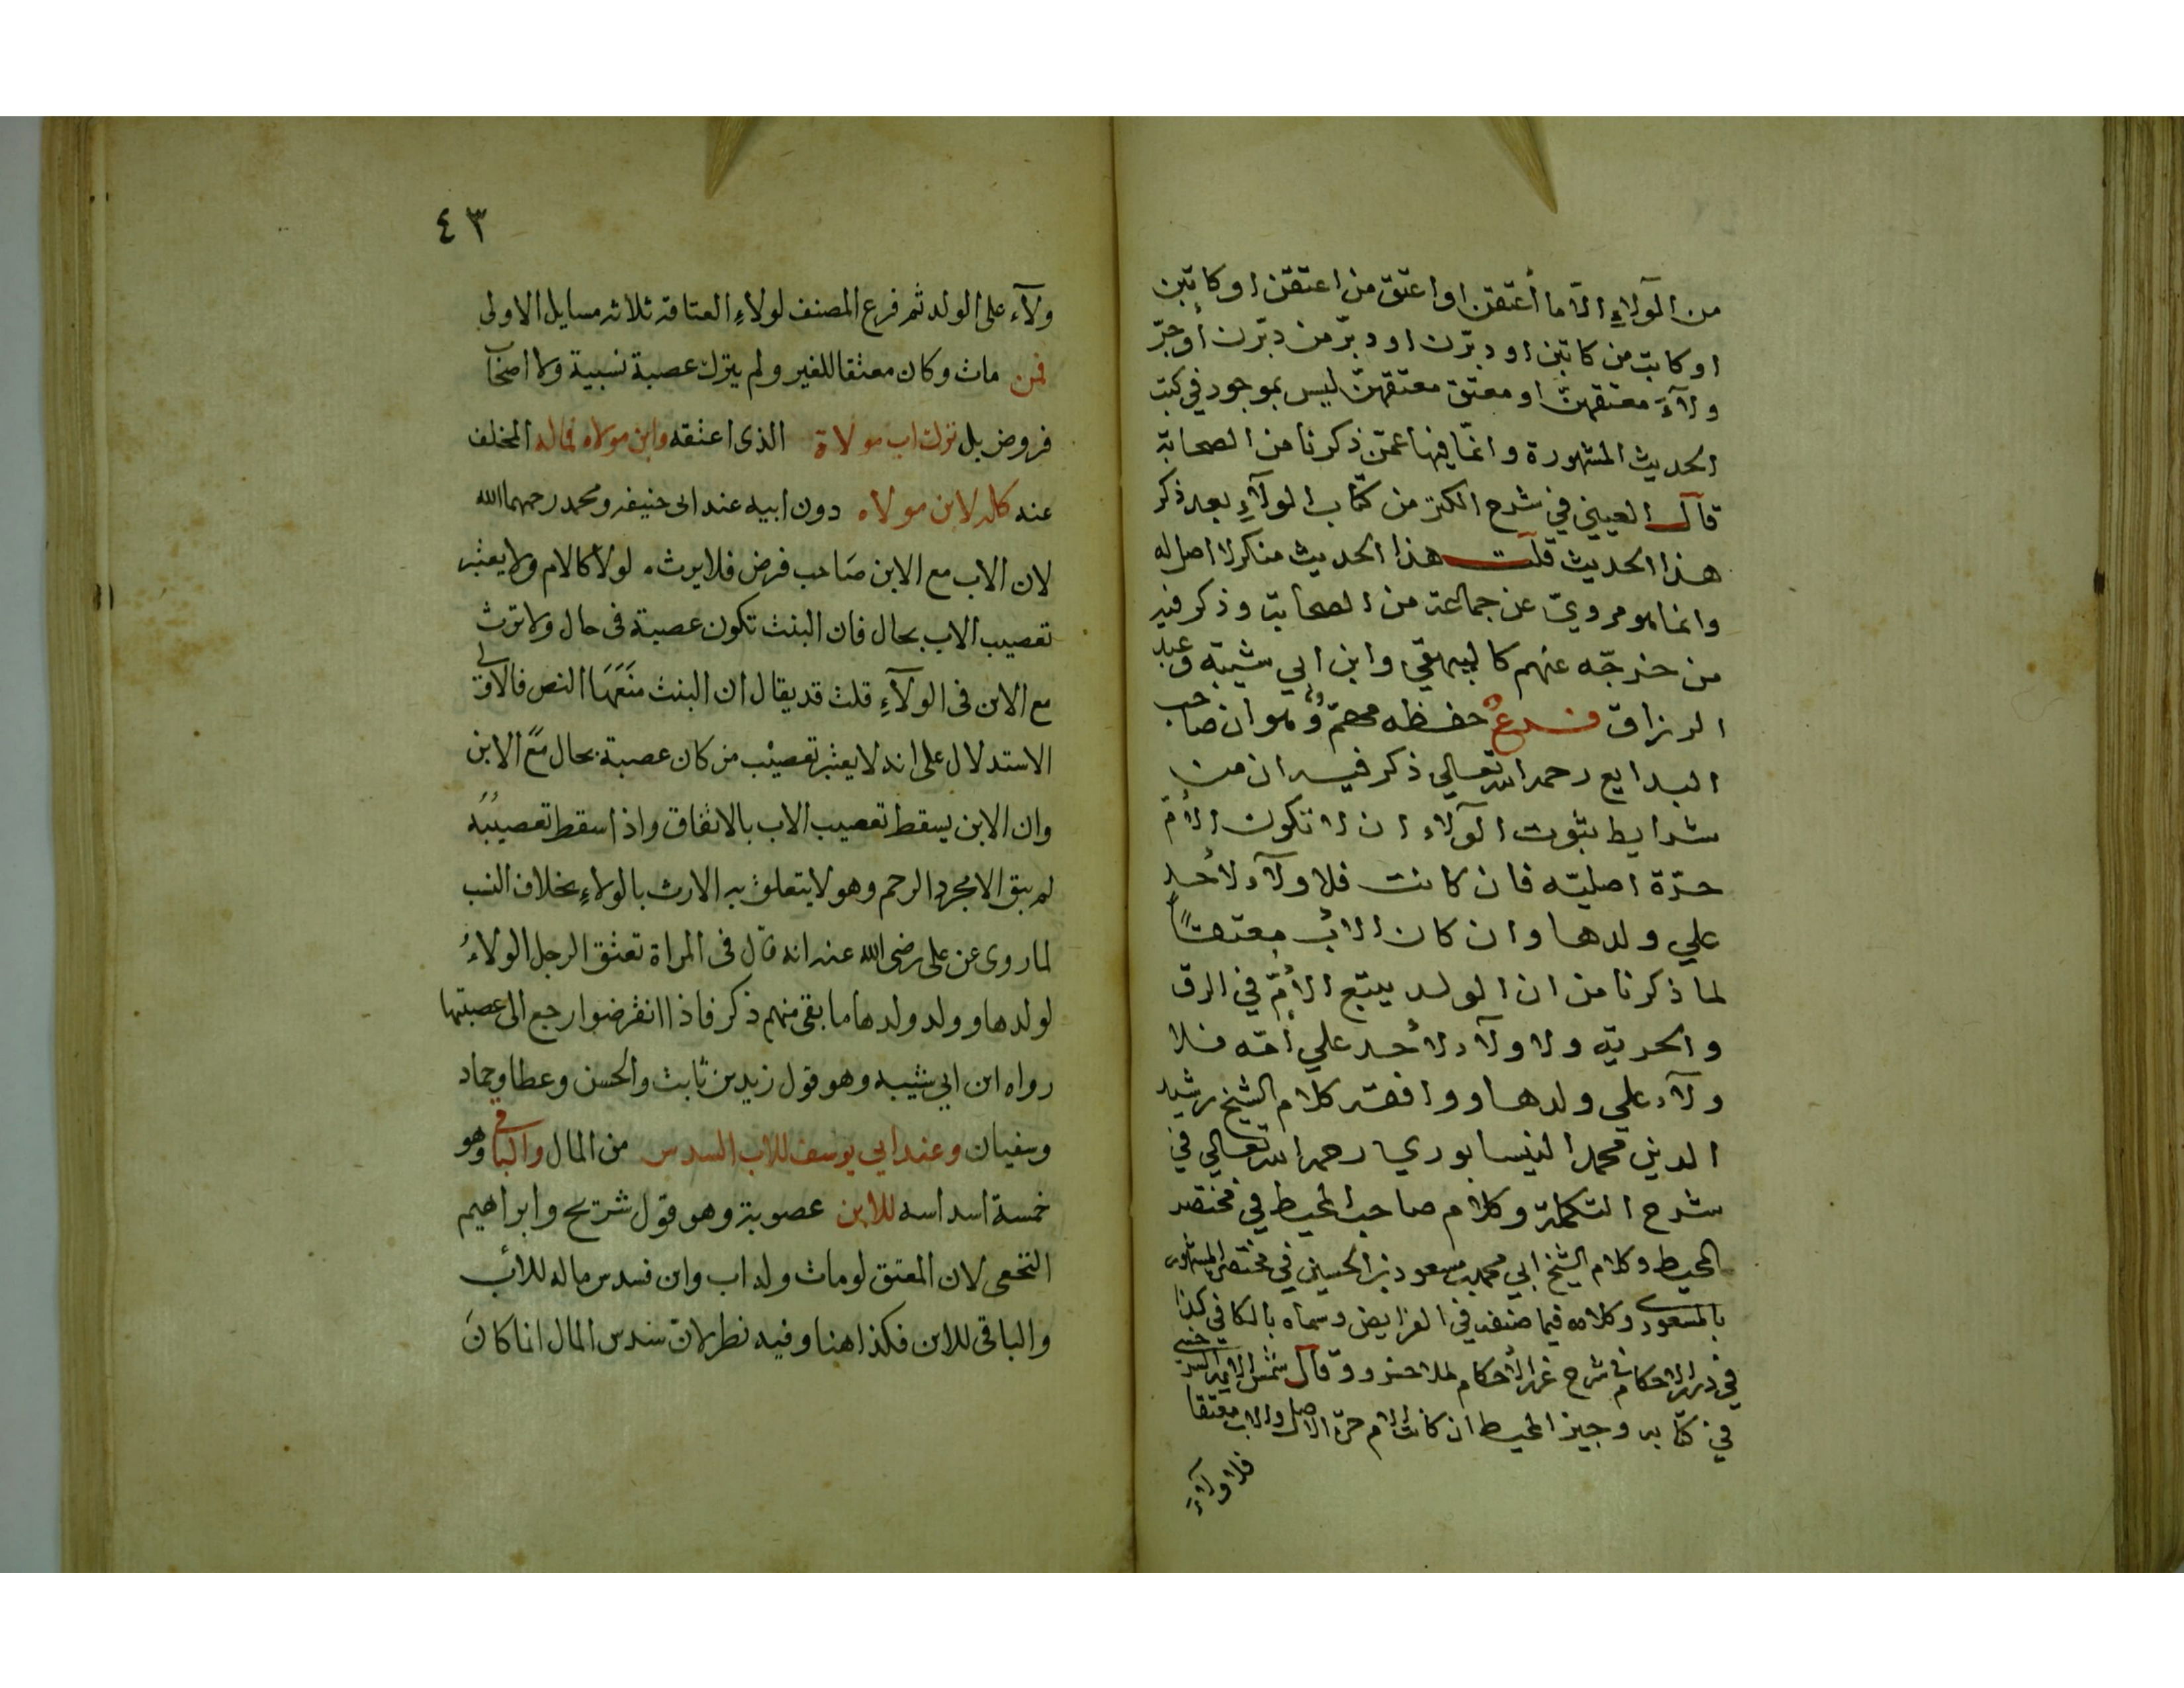 من الولاءِ الّا ما أعتقن او اعتق من اعتقن او كاتبن
او كاتب من كاتبن او دبّرن او دبّر من دبّرن أو جرّ
ولاءَ معتقهنّ او معتق معتقهنّ ليس بموجود في كتب
الحديث المشهورة وانّما فيها عمّن ذكرنا من الصحابة
قال العيني في شرح الكنز من كتاب الولاءِ بعد ذكر
هذا الحديث قلت هذا الحديث منكر لا اصل له
وانما هو مرويّ عن جماعة من الصحابة وذكر فيه
من خرجّه عنهم كالبيهقي وابن ابي شيبة وعبد
الرزاق فرع حفظه مهمّ وهو ان صاحب
البدايع رحمه الله تعالي ذكر فيه ان من
شرايط ثبوت الولاء ان لا تكون الأمّ
حرّة اصليّة فان كانت فلا ولاء لأحد
علي ولدها وان كان الأب معتقاً
لما ذكرنا من ان الولد يتبع الأمّ في الرق
والحرية ولا ولاء لأحد علي أمّه فلا
ولاء علي ولدها ووافقه كلام الشيخ رشيد
الدين محمد النيسابوري رحمه الله تعالي في
شرح التكملة وكلام صاحب المحيط في مختصر
المحيط وكلام الشيخ ابي محمد مسعود بن الحسين في مختصره المشهور
بالمسعودي وكلامه فيما صنفه في الفرايض وسماه بالكافي كذا
في درر الاحكام في شرح غرر الأحكام لملا خسرو وقال شمس الايمة السرخسي
في كتابه وجيز المحيط ان كانت الام حرّة الاصل والاب معتقا
فلا ولاءَ
٤٣
ولاء على الولد ثم فرع المصنف لولاءِ العتاقه ثلاثه مسايل الاولى
فمن مات وكان معتقا للغير ولم يترك عصبة نسبية ولا اصحاب
فروض بل ترك اب مولاة الذى اعتقه وابن مولاه فماله المخلف
عنه كله لابن مولاه دون ابيه عند ابى حنيفه ومحمد رحمهما الله
لان الاب مع الابن صَاحب فرض فلا يرث لولا كالام ولا يعتبر
تعصيب الاب بحال فان البنت تكون عصبة فى حال ولا ترث
مع الابن فى الولاءِ قلت قد يقال ان البنت مَنَعَهَا النص فالاولى
الاستدلال على انه لا يعتبر تعصيب من كان عصبة بحال مع الابن
وان الابن يسقط تعصيب الاب بالاتفاق واذا سقط تعصيبُه
لم يبق الا مجرد الرحم وهو لا يتعلق به الارث بالولاءِ بخلاف النسب
لما روى عن على رضى الله عنه انه قال فى المراة تعتق الرجل الولاءُ
لولدها وولد ولدها ما بقى منهم ذكر فاذا انقرضوا رجع الى عصبتها
رواه ابن ابي شيبه وهو قول زيد بن ثابت والحسن وعطا وحماد
وسفيان وعند ابي يوسف للاب السدس من المال والباقي وهو
خمسة اسداسه للابن عصوبة وهو قول شريح وابراهيم
النخعى لان المعتق لو مات وله اب وابن فسدس ماله للأب
والباقى للابن فكذا هنا وفيه نظر لان سدس المال انما كانَ